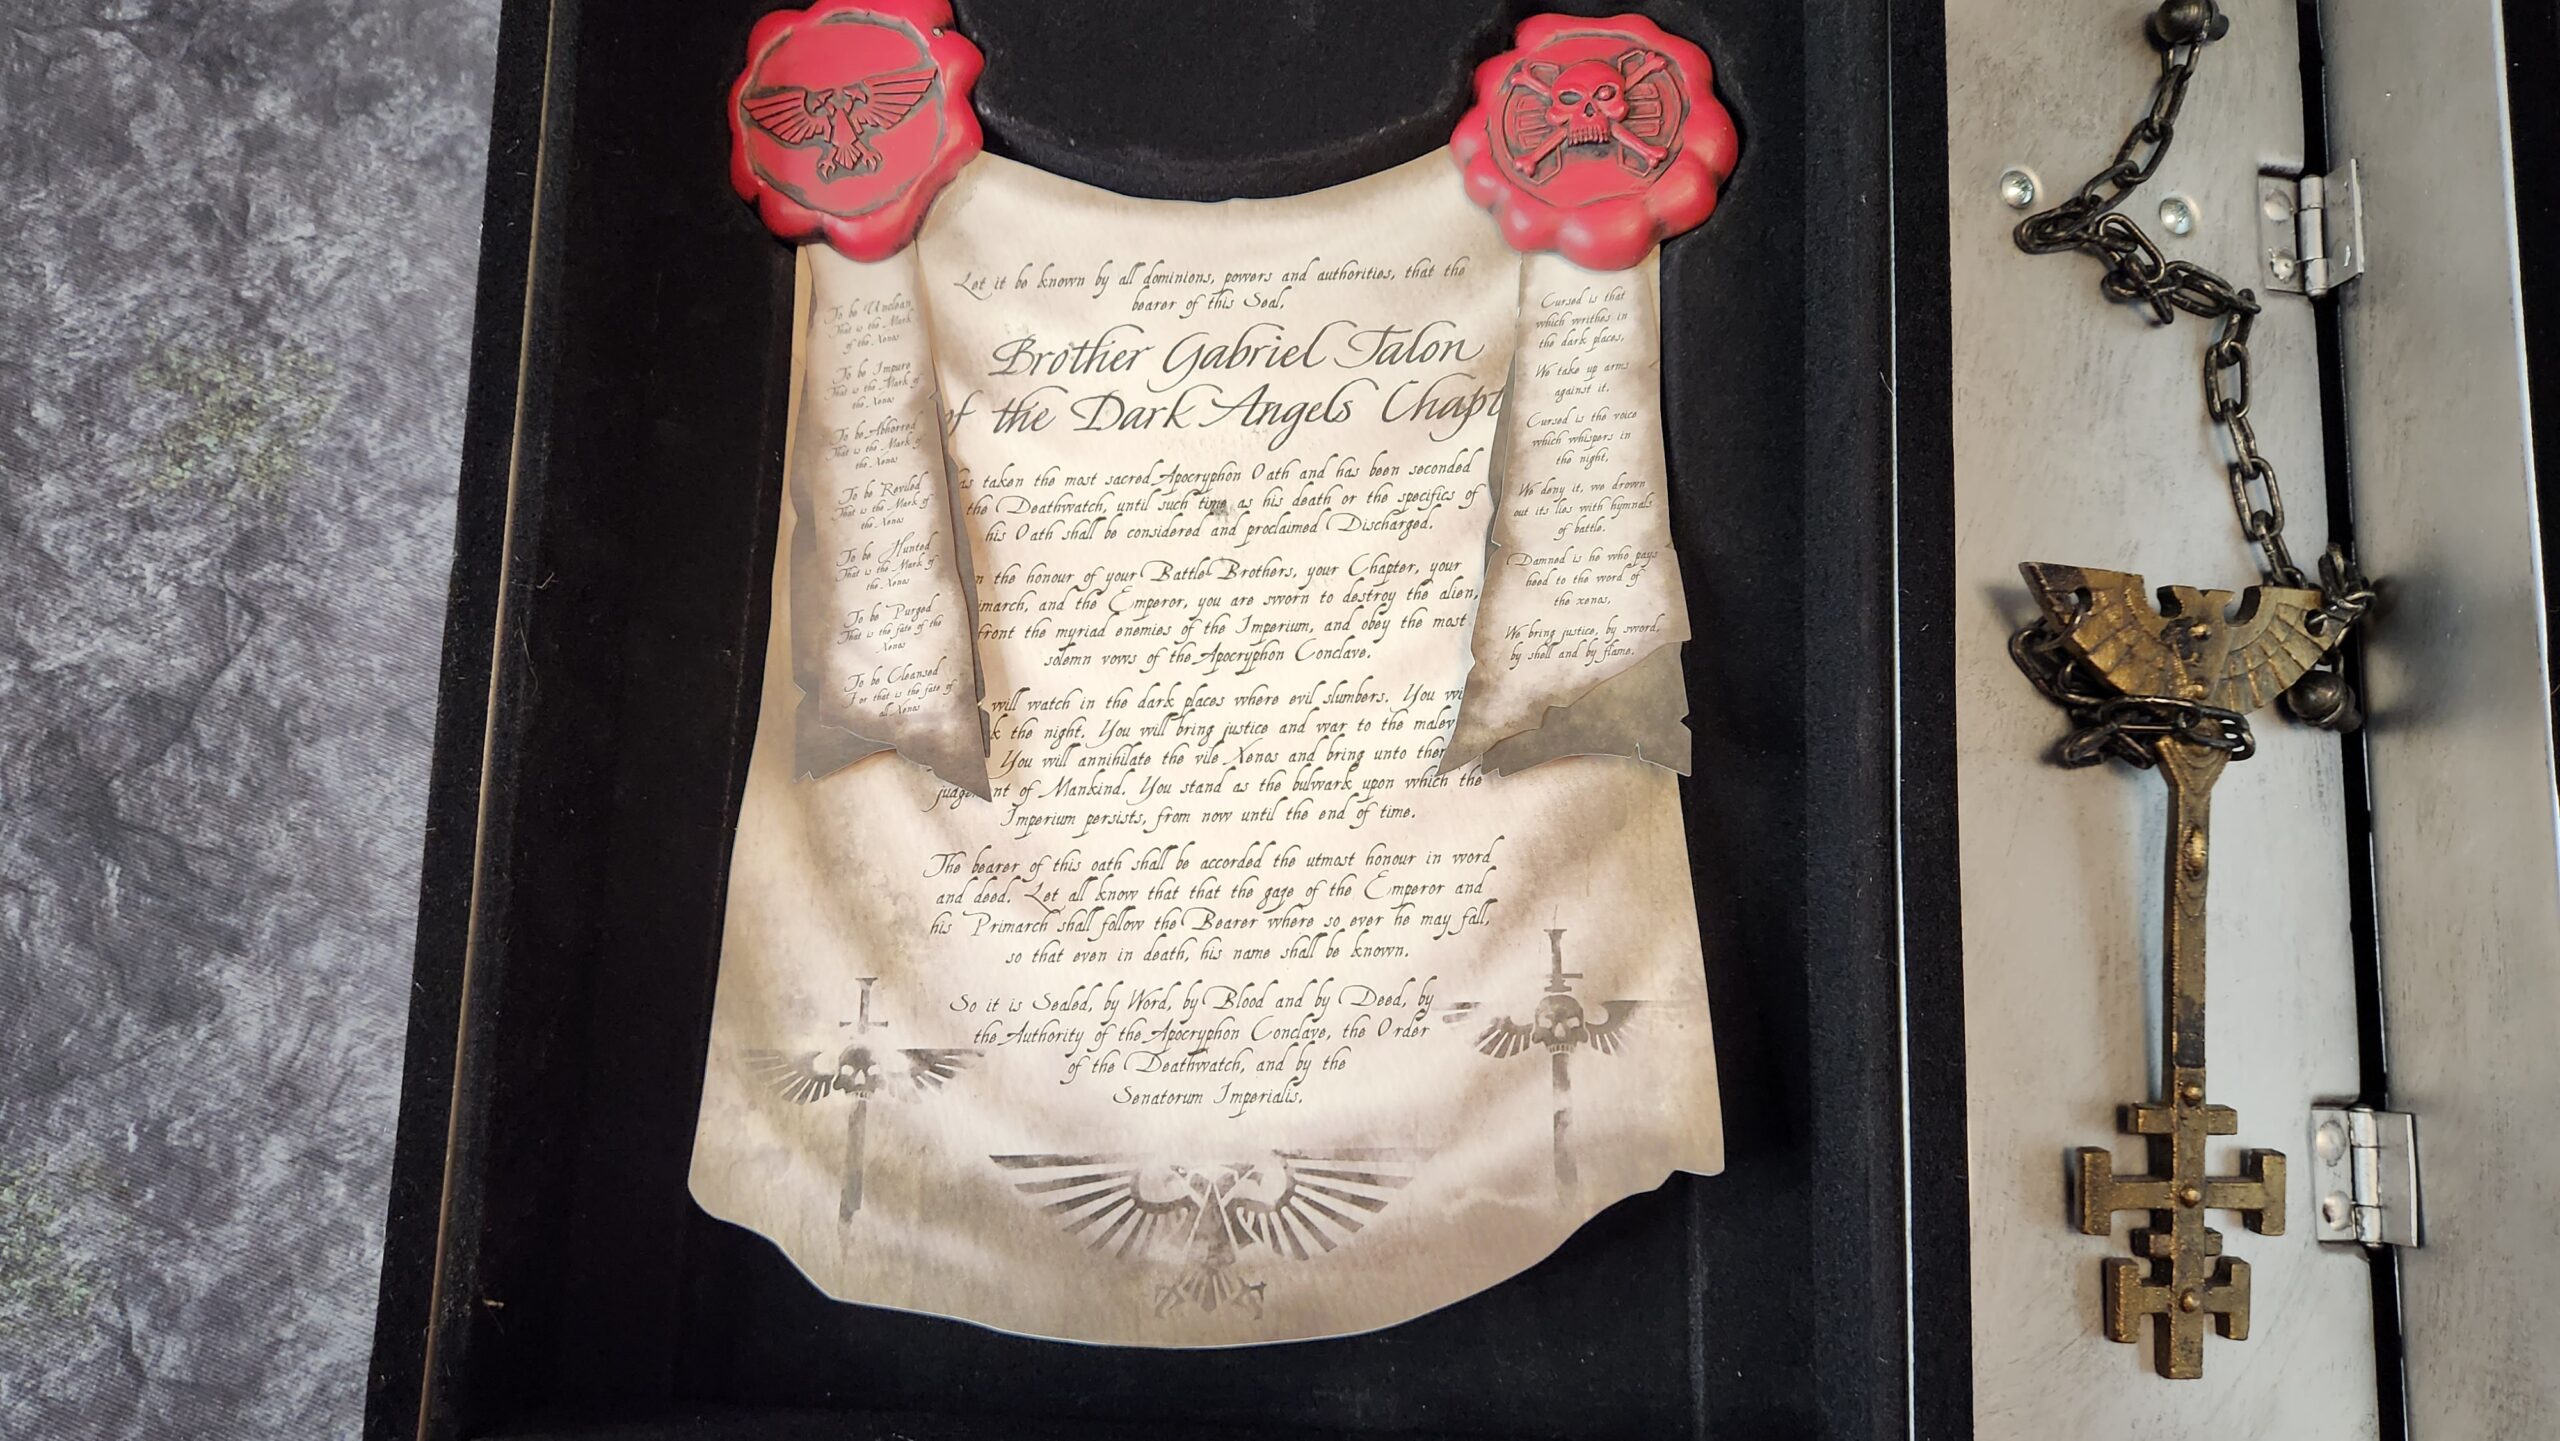 To be Unclean
That is the Mark
of the Xenos
To be Impure
That is the Mark of
the Xenos
To be Abhorred
That is the Mark of
the Xenos
To be Reviled
That is the Mark of
the Xenos
To be Hunted
That is the Mark of
the Xenos
To be Purged
That is the fate of the
Xenos
To be Cleansed
For that is the fate of
all Xenos
Let it be known by all dominions, powers and authorities, that the
bearer of this Seal,
Brother Gabriel Talon
of the Dark Angels Chapt
as taken the most sacred Apocryphon Oath and has been seconded
the Deathwatch, until such time as his death or the specifics of
his Oath shall be considered and proclaimed Discharged.
n the honour of your Battle-Brothers, your Chapter, your
imarch, and the Emperor, you are sworn to destroy the alien,
front the myriad enemies of the Imperium, and obey the most
solemn vows of the Apocryphon Conclave.
will watch in the dark places where evil slumbers. You wi
k the night. You will bring justice and war to the malev
You will annihilate the vile Xenos and bring unto them
judge nt of Mankind. You stand as the bulwark upon which the
Imperium persists, from now until the end of time.
The bearer of this oath shall be accorded the utmost honour in word
and deed. Let all know that that the gaze of the Emperor and
his Primarch shall follow the Bearer where so ever he may fall,
so that even in death, his name shall be known.
So it is Sealed, by Word, by Blood and by Deed, by
the Authority of the Apocryphon Conclave, the Order
of the Deathwatch, and by the
Senatorum Imperialis.
Cursed is that
which writhes in
the dark places,
We take up arms
against it.
Cursed is the voice
which whispers in
the night,
We deny it, we drown
out its lies with hymnals
of battle.
Damned is he who pays
heed to the word of
the xenos,
We bring justice, by sword,
by shell and by flame.